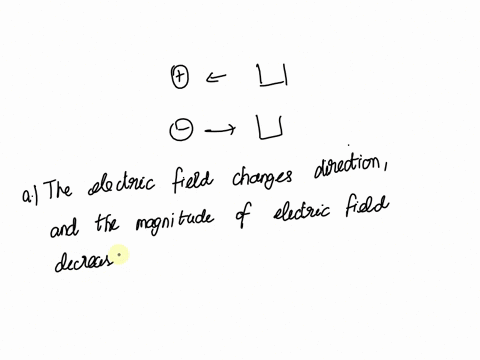 + ←
- →
a.) The electric field changes direction,
and the magnitude of electric field
decreas